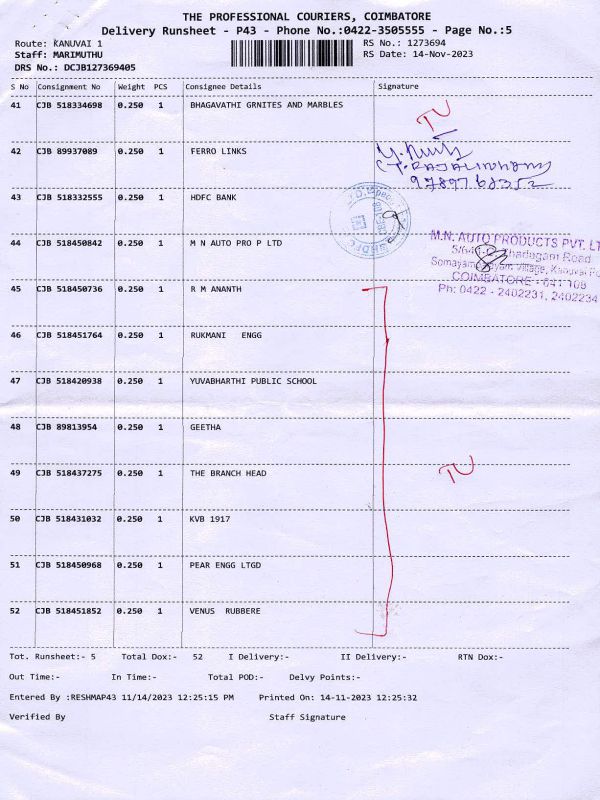 THE PROFESSIONAL COURIERS, COIMBATORE
Delivery Runsheet - P43 - Phone No.:0422-3505555 - Page No.:5
Route: KANUVAI 1 RS No.: 1273694
Staff: MARIMUTHU RS Date: 14-Nov-2023
DRS No.: DCJB127369405
S No Consignment No Weight PCS Consignee Details Signature
41 CJB 518334698 0.250 1 BHAGAVATHI GRNITES AND MARBLES TU
42 CJB 89937089 0.250 1 FERRO LINKS
9789768352
43 CJB 518332555 0.250 1 HDFC BANK
44 CJB 518450842 0.250 1 M N AUTO PRO P LTD
M.N. AUTO PRODUCTS PVT. LT
Thadagam Road
Village, Kanuvai Po
COIMBATORE - 641 108
Ph: 0422 - 2402231, 2402234
45 CJB 518450736 0.250 1 R M ANANTH
46 CJB 518451764 0.250 1 RUKMANI ENGG
47 CJB 518420938 0.250 1 YUVABHARTHI PUBLIC SCHOOL
48 CJB 89813954 0.250 1 GEETHA
49 CJB 518437275 0.250 1 THE BRANCH HEAD TU
50 CJB 518431032 0.250 1 KVB 1917
51 CJB 518450968 0.250 1 PEAR ENGG LTGD
52 CJB 518451852 0.250 1 VENUS RUBBERE
Tot. Runsheet:- 5 Total Dox:- 52 I Delivery:- II Delivery:- RTN Dox:-
Out Time:- In Time:- Total POD:- Delvy Points:-
Entered By :RESHMAP43 11/14/2023 12:25:15 PM Printed On: 14-11-2023 12:25:32
Verified By Staff Signature